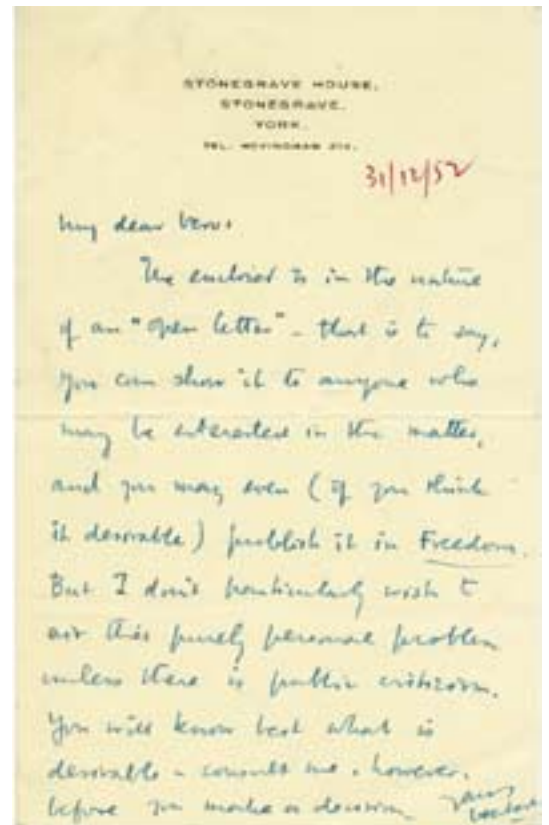 STONEGRAVE HOUSE,
STONEGRAVE,
YORK.
TEL. HOVINGHAM
31/12/52
My dear Vero,
The enclosed is in the nature
of an "open letter" - that is to say,
you can show it to anyone who
may be interested in the matter,
and you may even (if you think
it desirable) publish it in Freedom.
But I don't particularly wish to
air this purely personal problem
unless there is public criticism.
You will know best what is
desirable - consult me, however,
before you make a decision.
Yours
Herbert